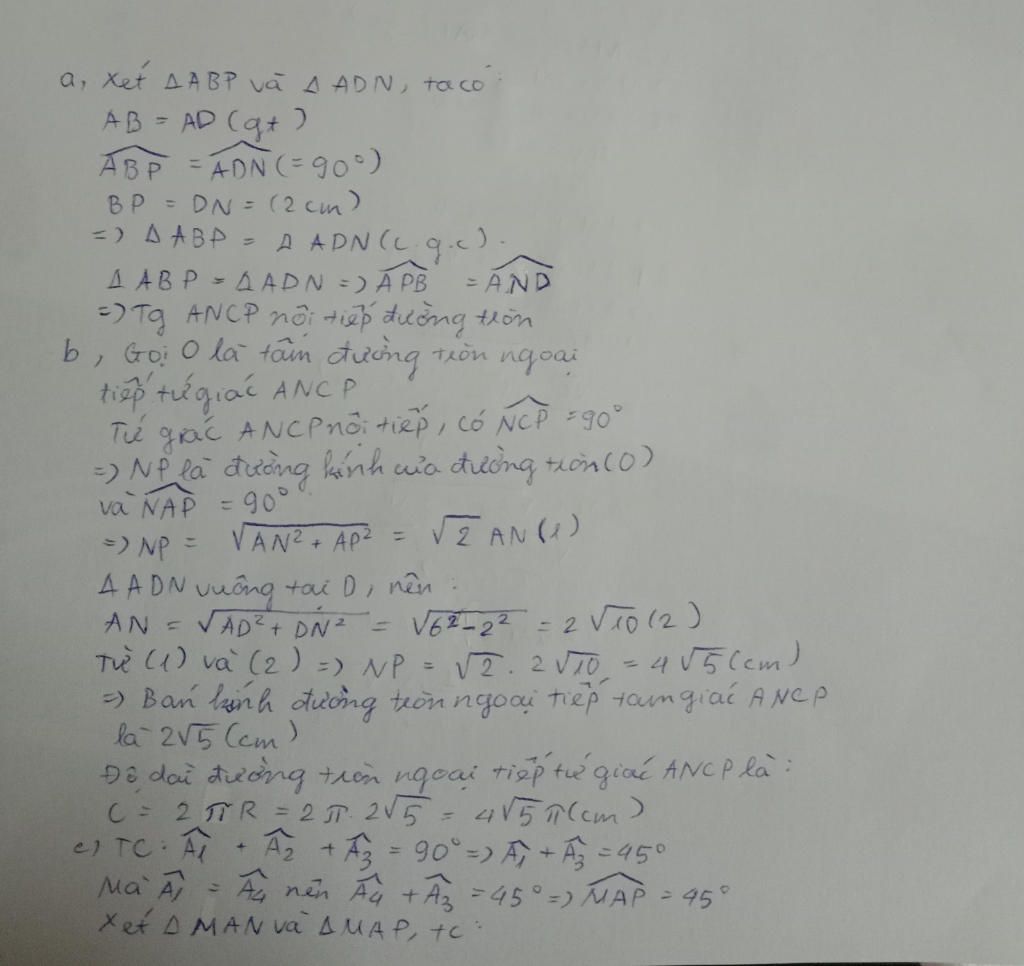 a, Xét ΔABP và Δ ADN, ta có:
AB = AD (gt)
\widehat{ABP} = \widehat{ADN} (= 90°)
BP = DN = (2 cm)
=> Δ ABP = Δ ADN (c.g.c).
Δ ABP = Δ ADN => \widehat{APB} = \widehat{AND}
=> Tg ANCP nội tiếp đường tròn
b, Gọi O là tâm đường tròn ngoại
tiếp tứ giác ANCP
Tứ giác ANCP nội tiếp, có \widehat{NCP} = 90°
=> NP là đường kính của đường tròn (O)
và \widehat{NAP} = 90°
=> NP = √(AN² + AP²) = √2 AN (1)
Δ ADN vuông tại D, nên:
AN = √(AD² + DN²) = √(6² - 2²) = 2√10 (2)
Từ (1) và (2) => NP = √2 . 2√10 = 4√5 (cm)
=> Bán kính đường tròn ngoại tiếp tam giác ANCP
là 2√5 (cm)
Độ dài đường tròn ngoại tiếp tứ giác ANCP là:
C = 2πR = 2π. 2√5 = 4√5π (cm)
c) TC: Â1 + Â2 + Â3 = 90° => Â1 + Â3 = 45°
Mà Â1 = Â4 nên Â4 + Â3 = 45° => \widehat{MAP} = 45°
Xét Δ MAN và Δ MAP, tc: